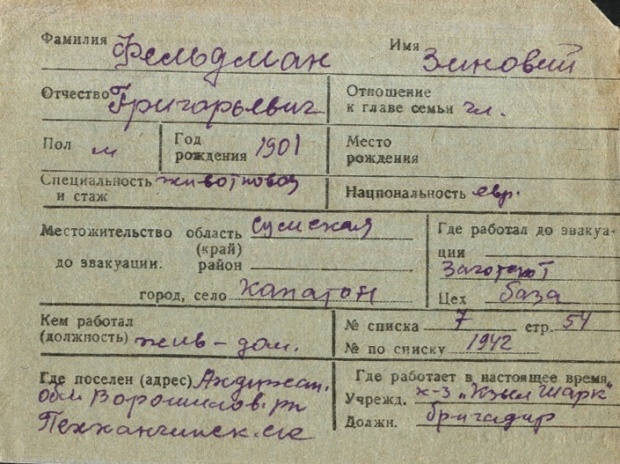 Фамилия Фельдман Имя Зиновий
Отчество Григорьевич Отношение к главе семьи чл.
Пол м Год рождения 1901 Место рождения
Специальность и стаж животновод Национальность евр.
Местожительство область Сумская
(край)
до эвакуации: район
город, село Хапатон
Где работал до эвакуа-
ции
Заготскот
Цех база
Кем работал
(должность) жив-дом.
№ списка 7 стр. 54
№ по списку 1942
Где поселен (адрес) Андижан.
обл. Ворошилов. рн
Где работает в настоящее время
Учрежд. к-з „Кзыл Шарк"
Должн. бригадир